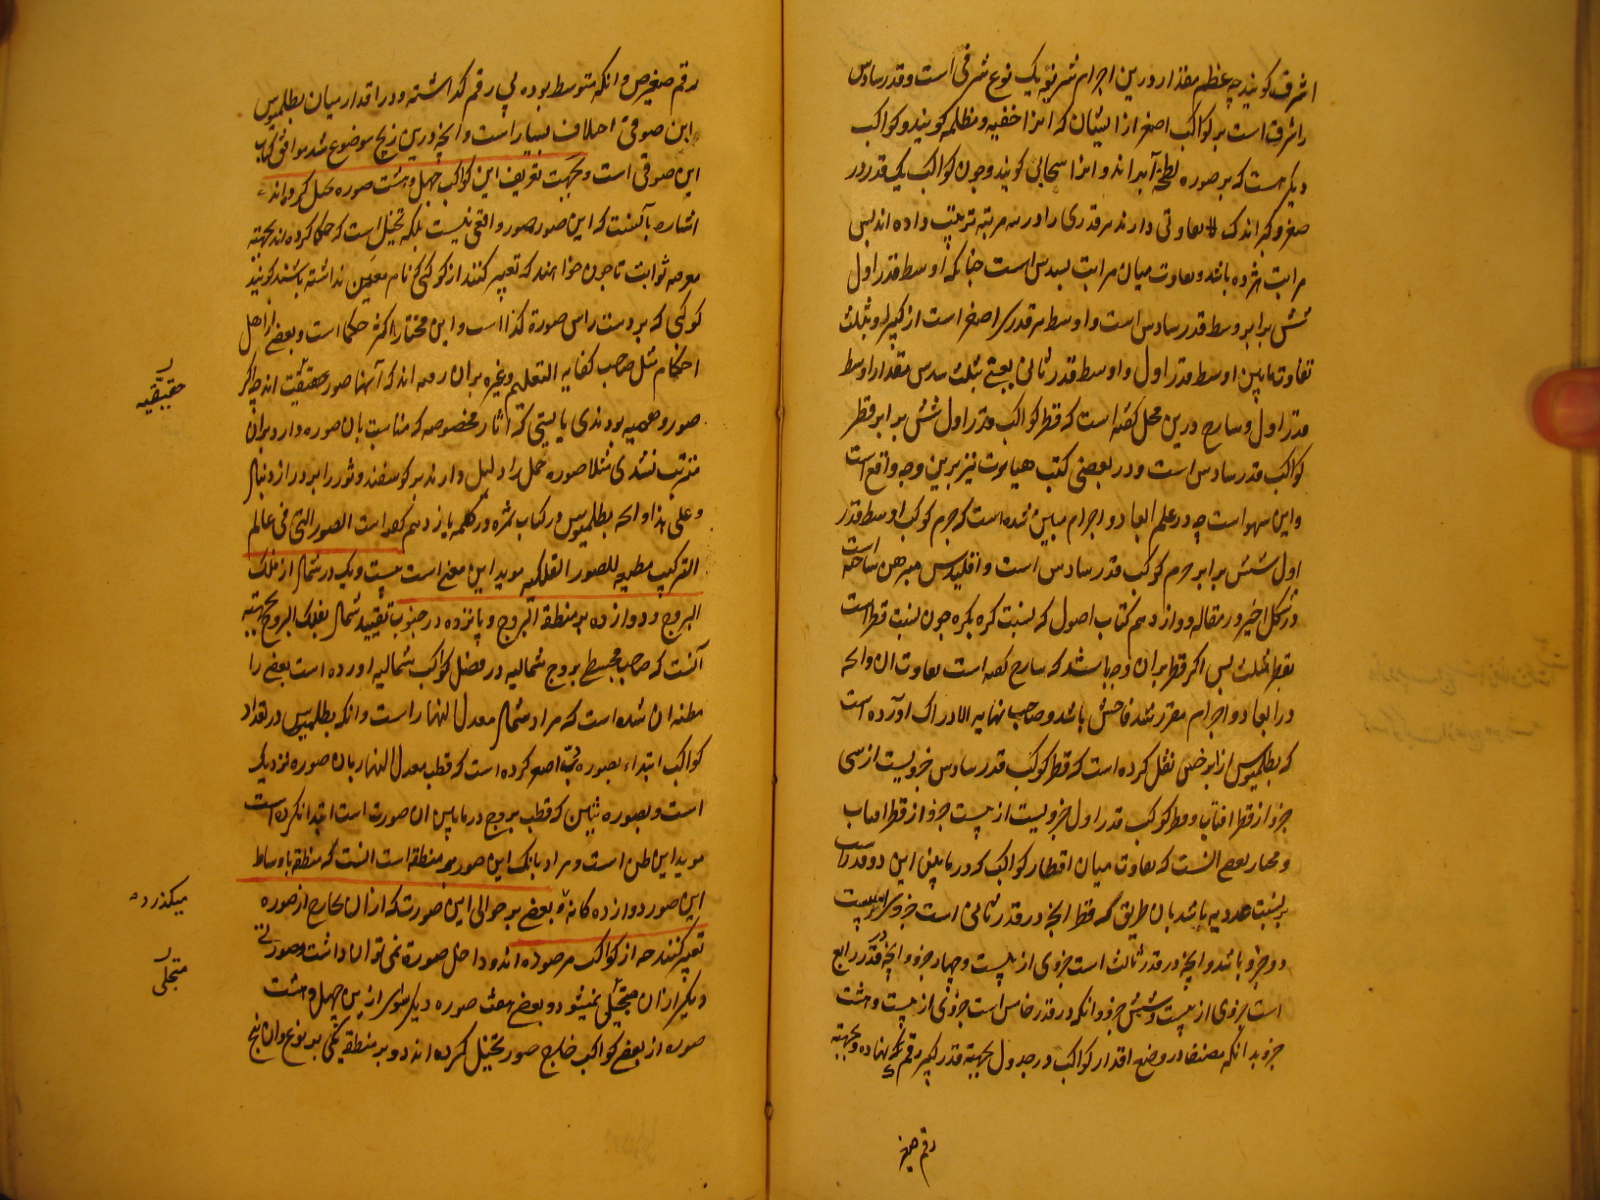 اشرف کویند چه عظم مقدار درین اجرام شریفه یک نوع شرفی است و قدر سادس
را شرف است بر کواکب اصغر از ایشان که انرا خفیه و مظلمه کویند و کواکب
دیکر هست که بر صوره لطخه آبر اند و انرا سحابی کویند و چون کواکب یک قدر در
صغر و کبر اندک تفاوتی دارند هر قدری را در سه مرتبه ترتیب داده اند پس
مراتب هژده باشد و تفاوت میان مراتب بسدس است چنانکه اوسط قدر اول
شش برابر وسط قدر سادس است و اوسط هر قدر اصغر است از کبر او بثلث
تفاوت مابین اوسط قدر اول و اوسط قدر ثانی یعنی بثلث سدس مقدار اوسط
قدر اول و شارح درین محل کفته است که قطر کواکب قدر اول شش برابر قطر
کواکب قدر سادس است و در بعضی کتب هیأت نیز برین وجه واقع است
و این سهو است چه در علم ابعاد و اجرام مبین شده است که جرم کوکب اوسط قدر
اول شش برابر جرم کوکب قدر سادس است و اقلیدس مبرهن ساخته است
در شکل اخیر در مقاله دوازدهم کتاب اصول که نسبت کره بکره چون نسبت قطر است
بقطر مثلث پس اکر قطر بران وجه باشد که شارح کفته است تفاوت ان و انچه
در ابعاد و اجرام مقرر شد فاحش باشد و صاحب نهایه الادراک اورده است
که بطلمیوس از ابرخس نقل کرده است که قطر کوکب قدر سادس جزویست از سی
جزو از قطر افتاب و قطر کوکب قدر اول جزویست از بیست جزو از قطر افتاب
و مختار بعضی انست که تفاوت میان اقطار کواکب که در مابین این دو قدر است
بر نسبت عددیه باشد بان طریق که قطر انچه در قدر ثانی است جزوی از بیست
و دو جزو باشد و انچه در قدر ثالث است جزوی از بیست و چهار جزو و انچه در قدر رابع
است جزوی از بیست و شش جزو و انکه در قدر خامس است جزوی از بیست و هشت
جزو بدانکه مصنف در وضع اقدار کواکب در جدول بجهة قدر کبیر رقم ک نهاده و بجهة
رقم صغیر
رقم صغیر ص و انکه متوسط بوده بی رقم کذاشته و در اقدار میان بطلمیوس
و ابن صوفی اختلاف بسیار است و انچه درین زیج موضوع شد موافق کتاب
ابن صوفی است و بجهت تعریف این کواکب چهل و هشت صوره تخیل کرده اند
اشاره بآنست که این صور صور واقعی نیست بلکه تخیل است که حکما کرده اند بجهة
معرفه ثوابت تا چون خواهند که تعبیر کنند از کوکبی که نام معین نداشته باشند کویند
کوکبی که بر دست راس صورة کذا است و این مختار اکثر حکما است و بعضی از اهل
احکام مثل صاحب کفایه التعلیم و غیره بران رفته اند که آنها صور حقیقت اند چه اکر
حقیقیه
صور وهمیه بودندی بایستی که اثار مخصوصه که مناسب بان صوره دارد بران
مترتب نشدی مثلا صوره حمل را دلیل دارند بر کوسفند و ثور را بر دراز دنبال
و علی هذا و انچه بطلمیوس در کتاب ثمره در کلمه یازدهم کفته است الصور التی فی عالم
الترکیب مطیعه للصور الفلکیه موید این معنی است بیست و یک در شمال از فلک
البروج و دوازده بر منطقة البروج و پانزده در جنوب تقیید شمال بفلک البروج بجهة
آنست که صاحب مجسطی بروج شمالیه در فصل کواکب شمالیه اورده است بعضی را
مظنه ان شده است که مراد شمال معدل النهار است و انکه بطلمیوس در تعداد
کواکب ابتداء بصوره دب اصغر کرده است که قطب معدل النهار بان صوره نزدیک
است و بصوره تنین که قطب بروج در مابین ان صورت است ابتدا نکرده است
موید این ظن است و مراد بانک این صور بر منطقه است انست که منطقه باوساط
این صور دوازده کانه و بعضی بر حوالی این صورت که از ان بخارج از صوره
میکذرد
تعبیر کنند چه از کواکب مرصوده اند و داخل صورة نمی توان داشت و صورتی
دیکر از ان متخیل نمیشود و بعضی هفت صوره دیکر سوای از این چهل و هشت
متجلی
صوره از بعضی کواکب خارج صور تخیل کرده اند دو بر منطقه یکی بر نوع وان پنج